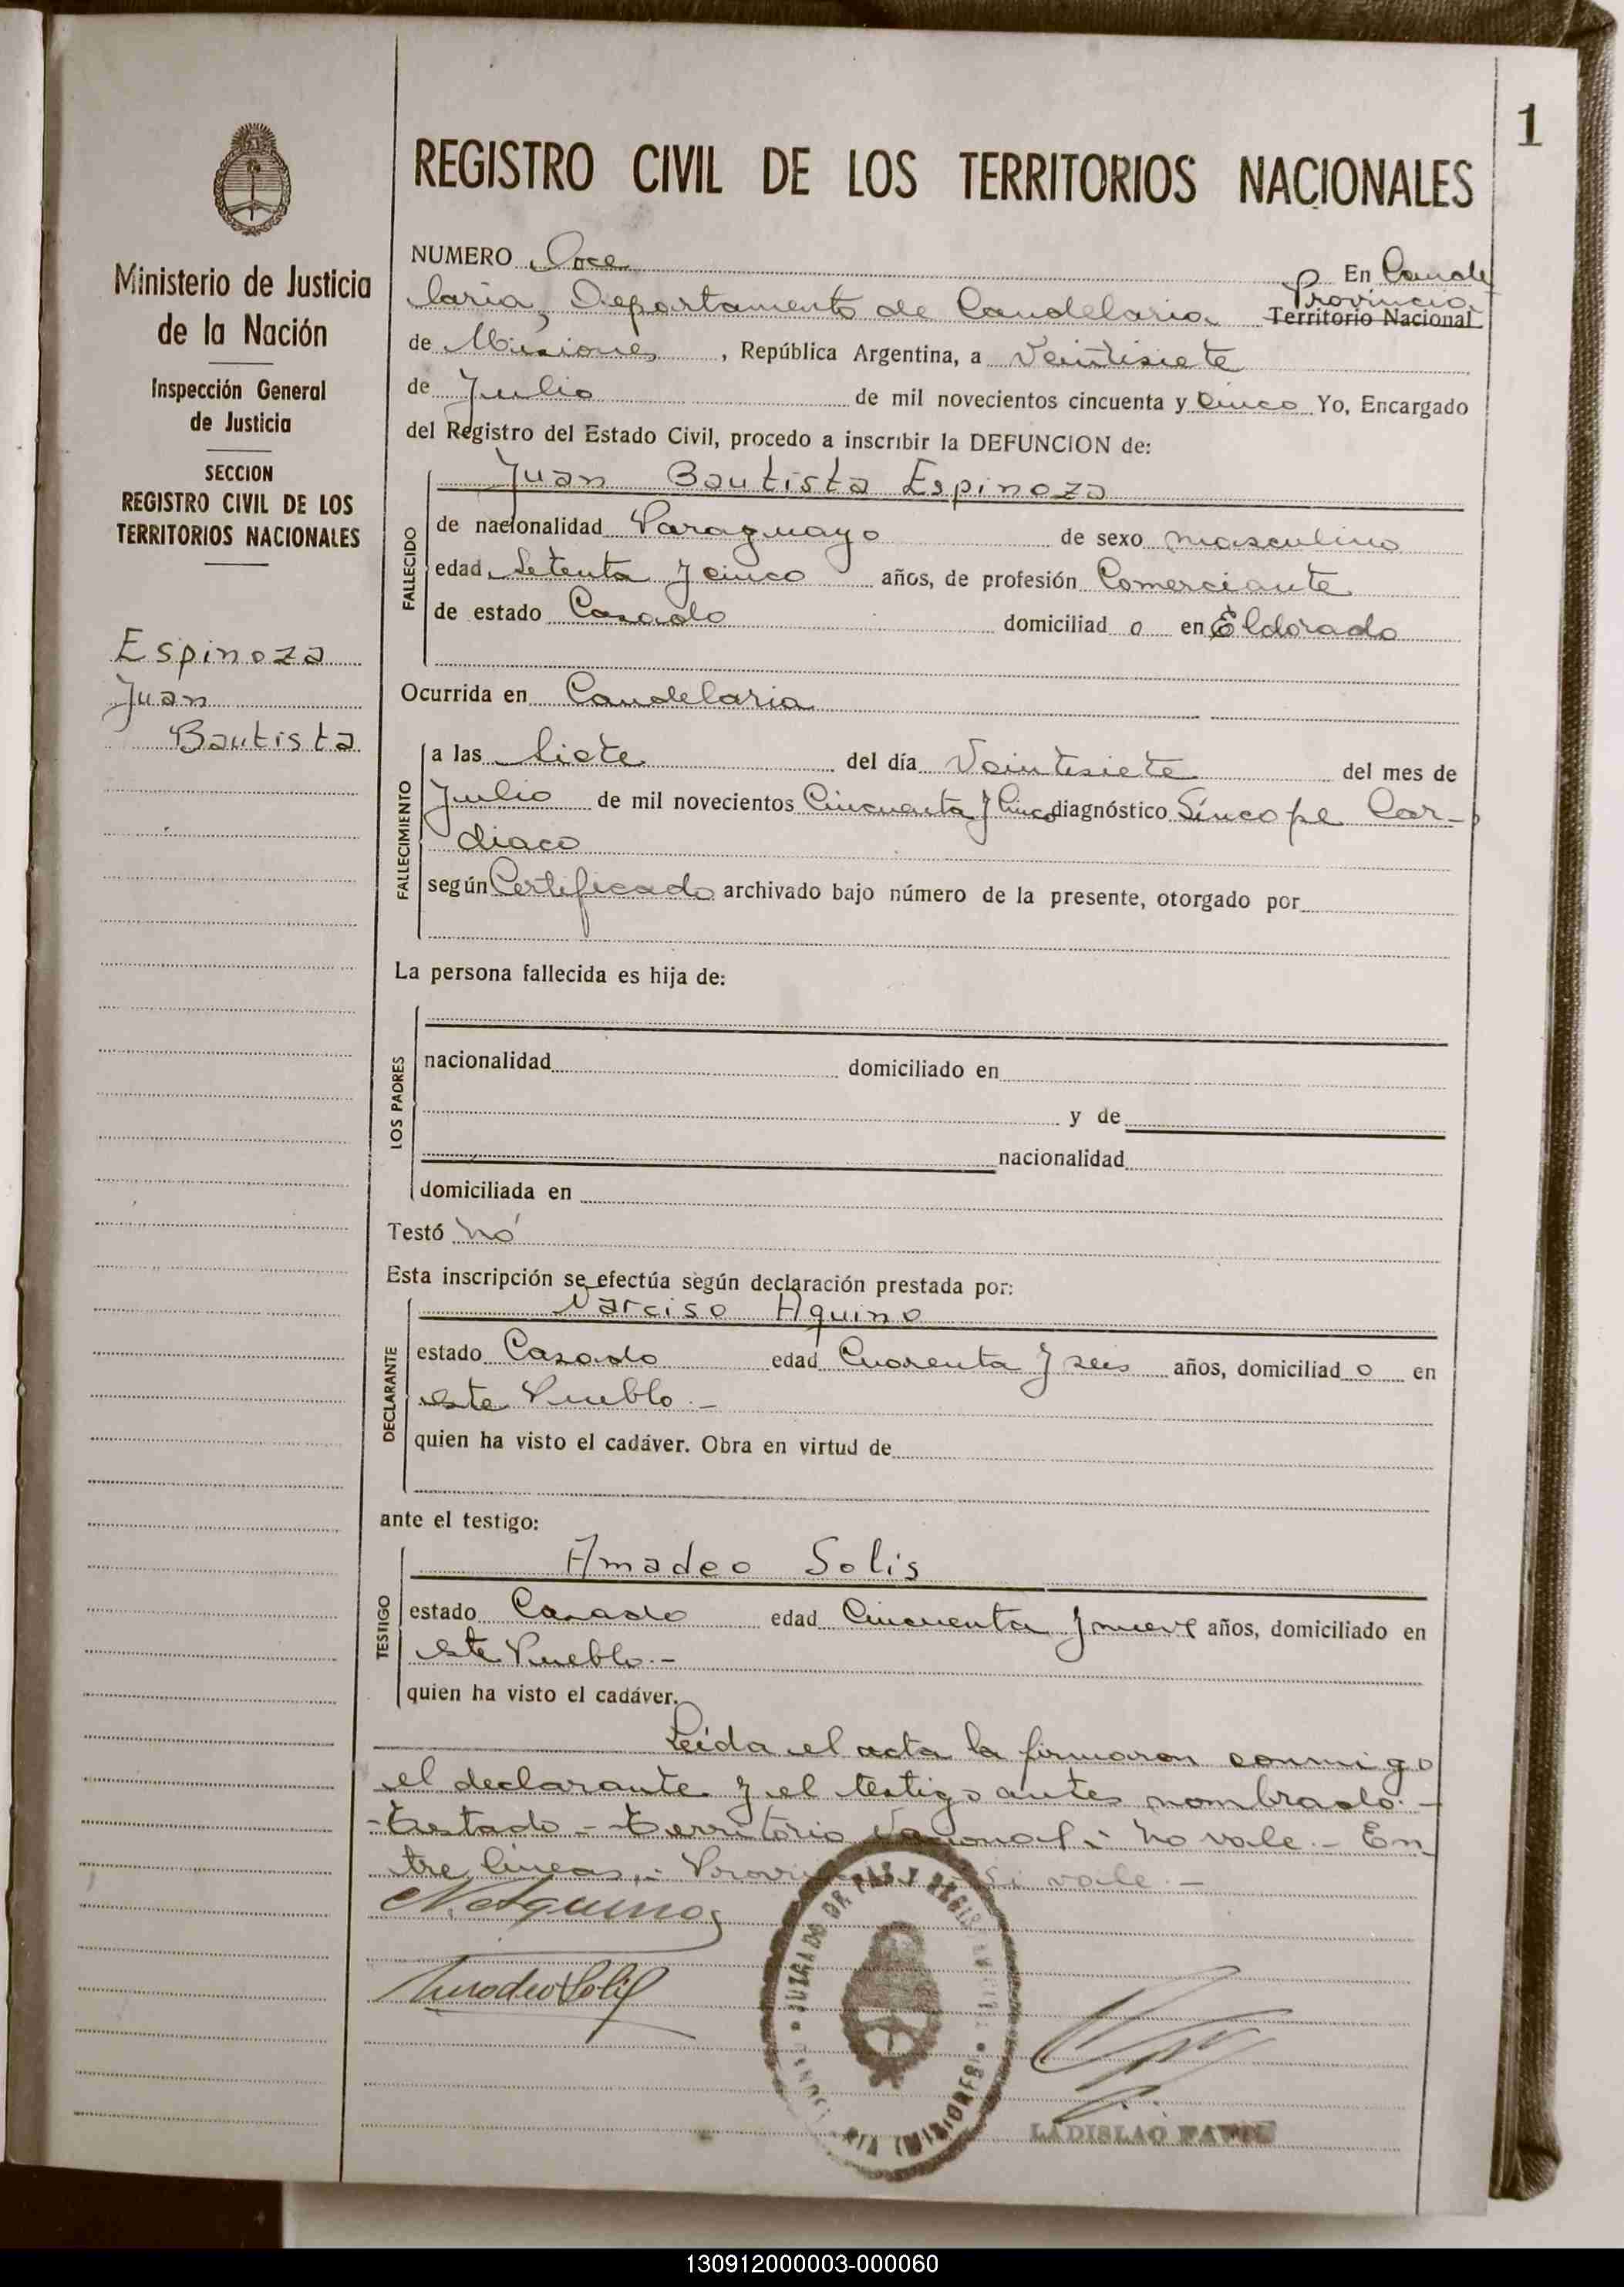 1
REGISTRO CIVIL DE LOS TERRITORIOS NACIONALES
Ministerio de Justicia
de la Nación
Inspección General
de Justicia
SECCION
REGISTRO CIVIL DE LOS
TERRITORIOS NACIONALES
Espinoza
Juan
Bautista
NUMERO Doce En Cande
laria, Departamento de Candelaria Provincia
Territorio Nacional
de Misiones, República Argentina, a Veintisiete
de Julio de mil novecientos cincuenta y Cinco Yo, Encargado
del Registro del Estado Civil, procedo a inscribir la DEFUNCION de:
Juan Bautista Espinoza
FALLECIDO
de nacionalidad Paraguayo de sexo masculino
edad Setenta y cinco años, de profesión Comerciante
de estado Casado domiciliad o en Eldorado
Ocurrida en Candelaria
FALLECIMIENTO
a las Siete del día Veintisiete del mes de
Julio de mil novecientos Cincuenta y Cinco diagnóstico Síncope Car-
diaco
según Certificado archivado bajo número de la presente, otorgado por
La persona fallecida es hija de:
LOS PADRES
nacionalidad domiciliado en
y de
nacionalidad
domiciliada en
Testó nó
Esta inscripción se efectúa según declaración prestada por:
Narciso Aquino
DECLARANTE
estado Casado edad Cuarenta y seis años, domiciliad o en
este Pueblo.-
quien ha visto el cadáver. Obra en virtud de
ante el testigo:
Amadeo Solis
TESTIGO
estado Casado edad Cincuenta y nueve años, domiciliado en
este Pueblo.-
quien ha visto el cadáver.
Leida el acta la firmaron conmigo
el declarante y el testigo antes nombrado.-
-Testado - Territorio Nacional - no vale.- En
tre lineas,- Provincia Si vale.-
N. Aquino
Amadeo Solis
JUZGADO DE PAZ Y
(MISIONES)
LADISLAO
130912000003-000060